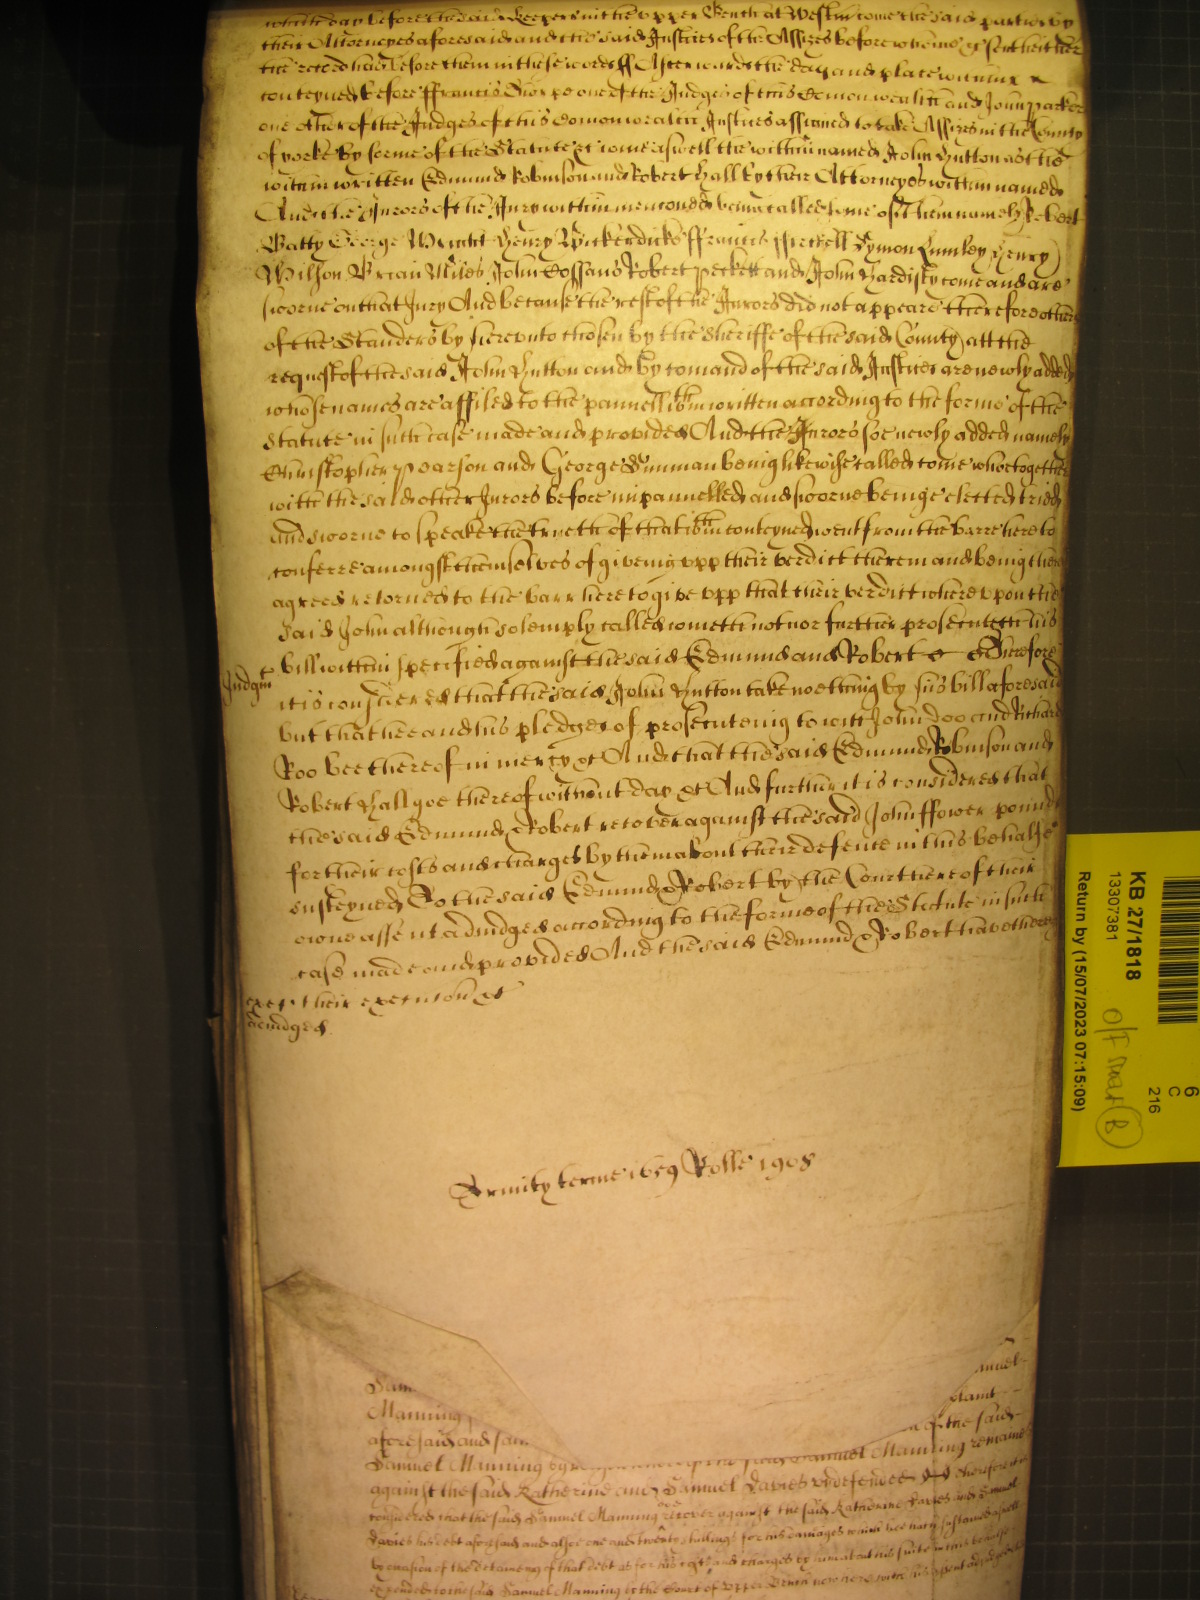 day before the said keepers in the upper Bench at Westm come the said parties by
their Attorneyes aforesaid and the said Justices of the Assizes before whome &c sent heither
the record had before them in these words ss Afterwards the day and place within
conteyned before ffrancis Thorpe one of the Judges of this Comonwealth and John Parker
one other of the Judges of this Comonwealth Justices assigned to take Assizes in the County
of yorke by forme of the Statute &c come aswell the within named John Hutton as the
within written Edmund Robinson and Robert Hall by their Attorneyes within named
And the Jurors of the Jury within menconed being called some of them namely Robert
Batty George Wright Henry Bickerdicke ffrancis Symon Lumley Henry
Wilson Brian Miles John Cossans Robert Peckett and John Hardisty come and are
sworne on that Jury And because the rest of the Jurors did not appeare therefore others
of the Standers by hereunto chosen by the Sheriffe of the said County att the
request of the said John Hutton and by comand of the said Justices are newly added
whose names are affiled to the pannell wthin written according to the forme of the
statute in such case made and provided And the Jurors soe newly added namely
Christopher Pearson and George Sunman being likewise called come who together
with the said other Jurors before impannelled and sworne being elected tried
and sworne to speake the trueth of that wthin conteyned went from the barre here to
conferre amongst themselves of giveing upp their verdict therein and being there
agreed retorned to the barr here to give upp that their verdict whereupon the
said John although solemply called cometh not nor further prosecuteth his
bill within specified against the said Edmund and Robert &c Therefore
Judgmt it is considered that the said John Hutton take nothing by his bill aforesaid
but that hee and his pledges of prosecuteing to witt John doo and Richard
Roo bee thereof in mercy &c And that the said Edmund Robinson and
Robert Hall goe thereof without day &c And further it is considered that
the said Edmund & Robert recover against the said John ffower pounds
for their costs and charges by them about their defence in this behalfe
susteyned To the said Edmund & Robert by the Court here of their
owne assent adiudged according to the forme of the Statute in such
case made and provided And the said Edmund & Robert have thereof
exec their execution &c
adiudged
Trinity terme 1659 Rolle 1908
Sam
Manning
aforesaid and
of the said
Samuel Manning by Samuel Manning remaines
against the said Katherine and Samuel Davies undefended &c therefore it is
considered that the said Samuel Manning doe recover against the said Katherine Davies and Samuel
Davies his debt aforesaid and alsoe one and twenty shillings for his damages which hee hath susteyned aswell
by occasion of the deteyneing of that debt as for his costs and charges by him about his suite in this behalfe
expended to the said Samuel Manning by the Court of upper Bench now here with his assent adiudged
KB 27/1818
13307381
Return by (15/07/2023 07:15:09)
6
C
216
B